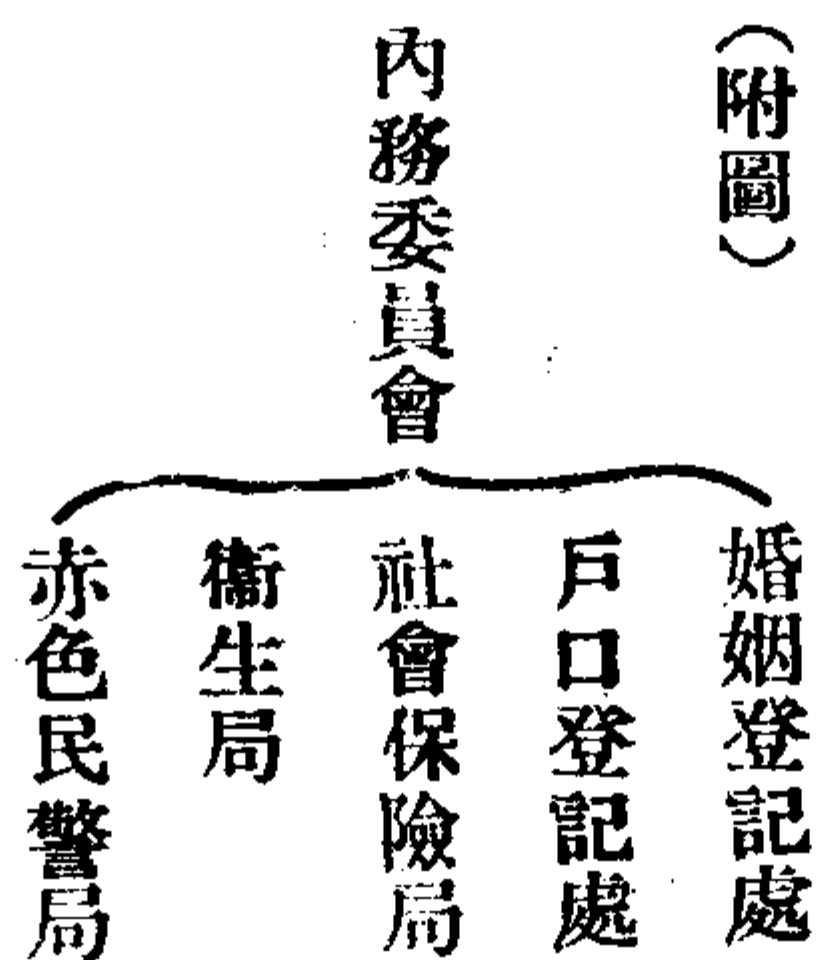 （附圖）
內務委員會
婚姻登記處
戶口登記處
社會保險局
衞生局
赤色民警局